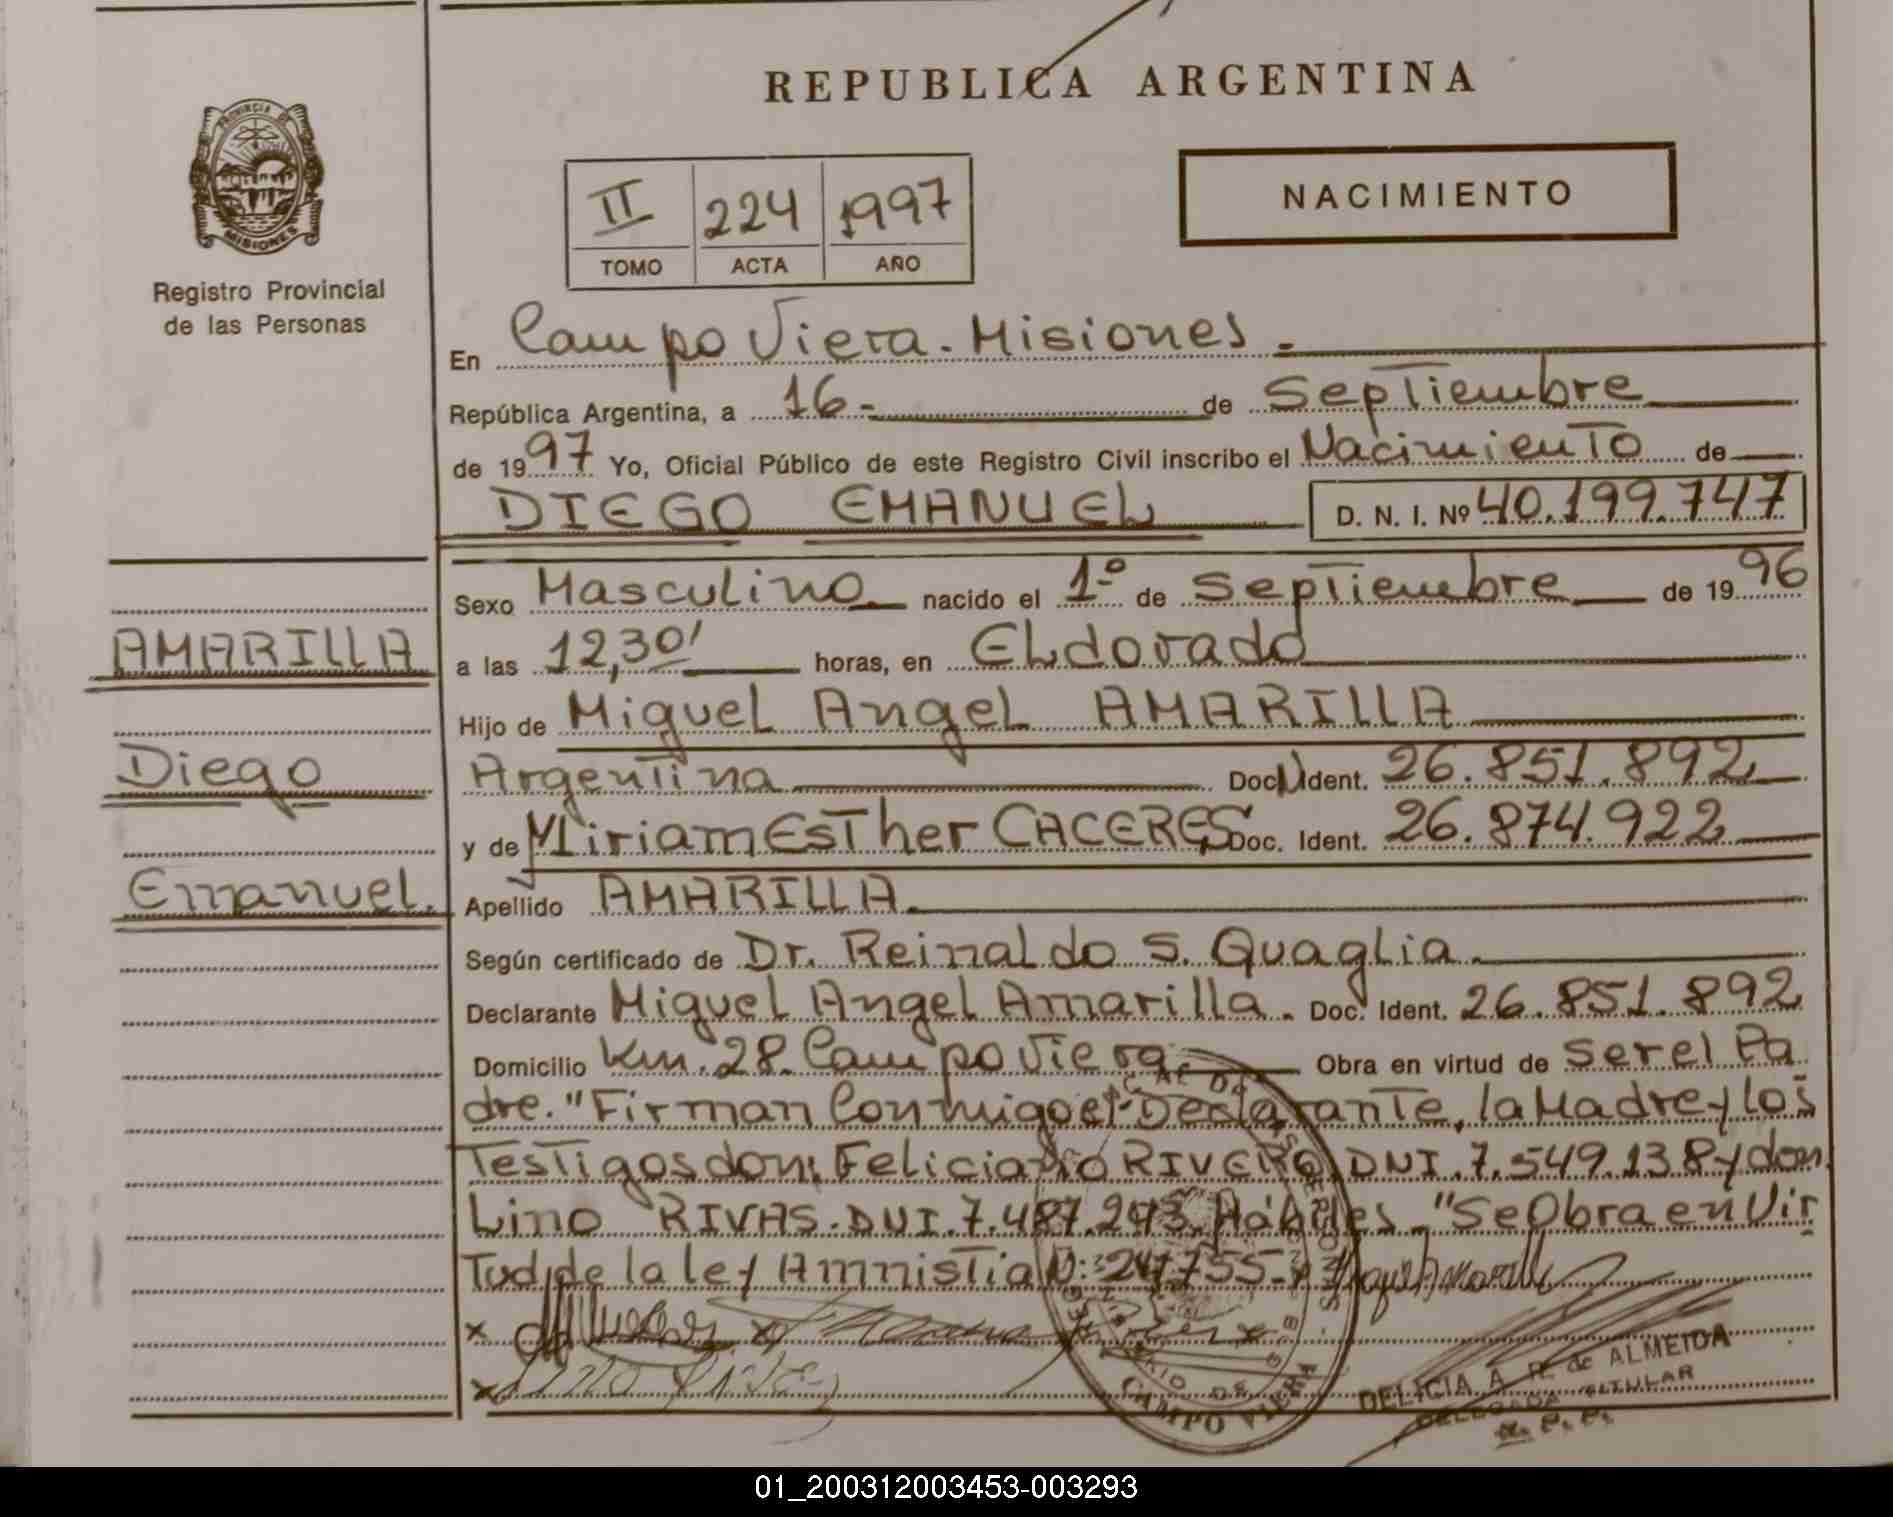 REPUBLICA ARGENTINA
PROVINCIA DE
MISIONES
Registro Provincial
de las Personas
II 224 1997
TOMO ACTA AÑO
NACIMIENTO
En Campo Viera - Misiones.
República Argentina, a 16- de Septiembre
de 1997 Yo, Oficial Público de este Registro Civil inscribo el Nacimiento de
DIEGO EMANUEL D. N. I. Nº 40.199.747
Sexo Masculino nacido el 1º de Septiembre de 1996
AMARILLA
a las 12,30' horas, en Eldorado
Hijo de Miguel Angel AMARILLA
Diego
Argentina Doc. Ident. 26.851.892
y de Miriam Esther CACERES Doc. Ident. 26.874.922
Emanuel.
Apellido AMARILLA.
Según certificado de Dr. Reinaldo S. Quaglia.
Declarante Miguel Angel Amarilla. Doc. Ident. 26.851.892
Domicilio Km. 28. Campo Viera Obra en virtud de ser el Pa
dre. "Firman Conmigo el Declarante, la Madre y los
Testigos don: Feliciano RIVERO, DNI. 7.549.138 y don
Lino RIVAS. DNI. 7.487.243. Hábiles. "Se Obra en Vir
Tud de la ley Amnistia N: 24755.
CAMPO VIERA
DELICIA A. R. de ALMEIDA
DELEGADA TITULAR
R. P. P.
01_200312003453-003293